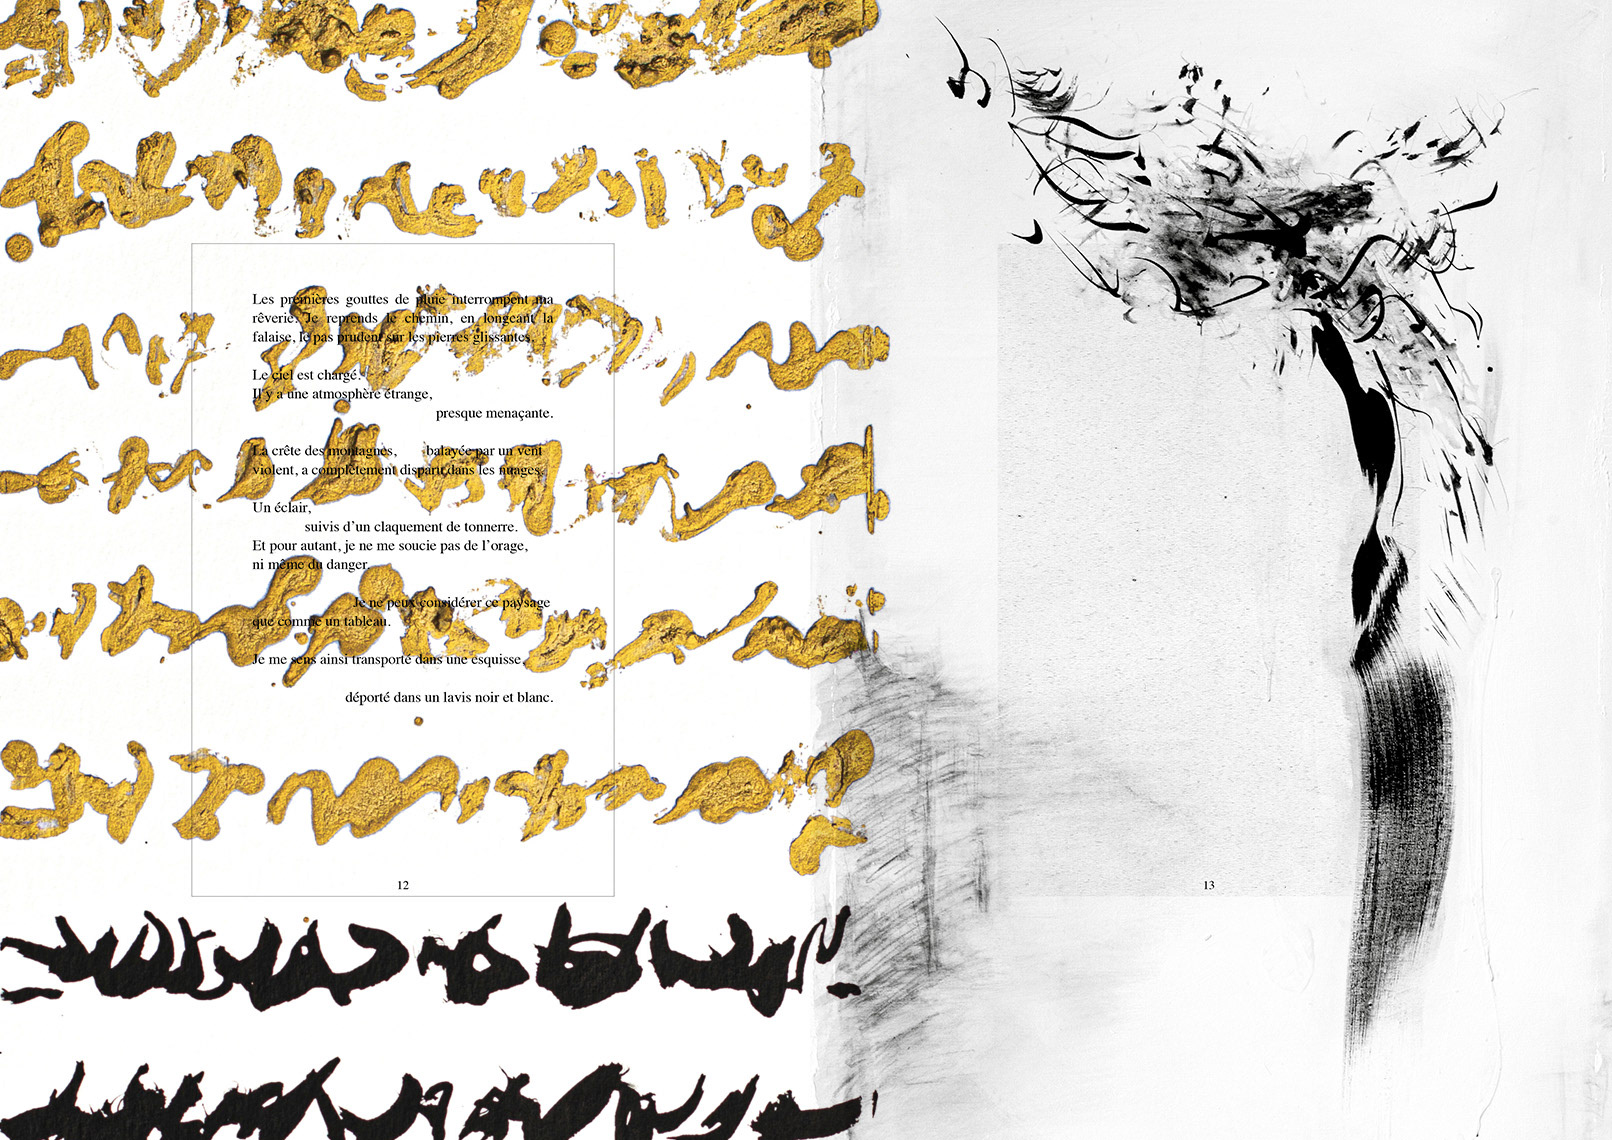 Les premières gouttes de pluie interrompent ma
rêverie. Je reprends le chemin, en longeant la
falaise, le pas prudent sur les pierres glissantes.
Le ciel est chargé.
Il y a une atmosphère étrange,
presque menaçante.
La crête des montagnes, balayée par un vent
violent, a complètement disparu dans les nuages.
Un éclair,
suivis d’un claquement de tonnerre.
Et pour autant, je ne me soucie pas de l’orage,
ni même du danger.
Je ne peux considérer ce paysage
que comme un tableau.
Je me sens ainsi transporté dans une esquisse,
déporté dans un lavis noir et blanc.
12
13